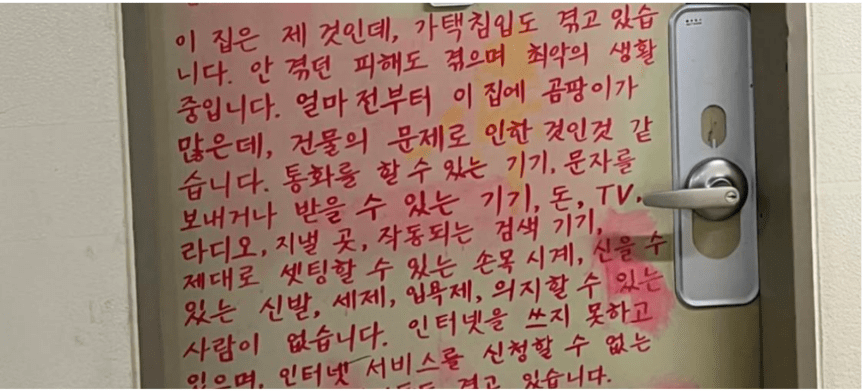 이 집은 제 것인데, 가택침입도 겪고 있습
니다. 안 겪던 피해도 겪으며 최악의 생활
중입니다. 얼마 전부터 이 집에 곰팡이가
많은데, 건물의 문제로 인한 것인것 같
습니다. 통화를 할 수 있는 기기, 문자를
보내거나 받을 수 있는 기기, 돈, TV,
라디오, 지낼 곳, 작동되는 검색 기기,
제대로 셋팅할 수 있는 손목 시계, 신을 수
있는 신발, 세제, 입욕제, 의지할 수 있는
사람이 없습니다. 인터넷을 쓰지 못하고
있으며, 인터넷 서비스를 신청할 수 없는
겪고 있습니다.